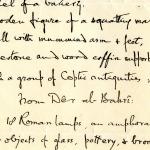 el of a bakery.
ooden figure of a squatting ma
ll with mummied arm & feet,
estone and wood coffin support
& a group of Coptic antiquities,
from Der el-Bahri.
10 Roman lamps, an amphora
objects of glass, pottery, & bro